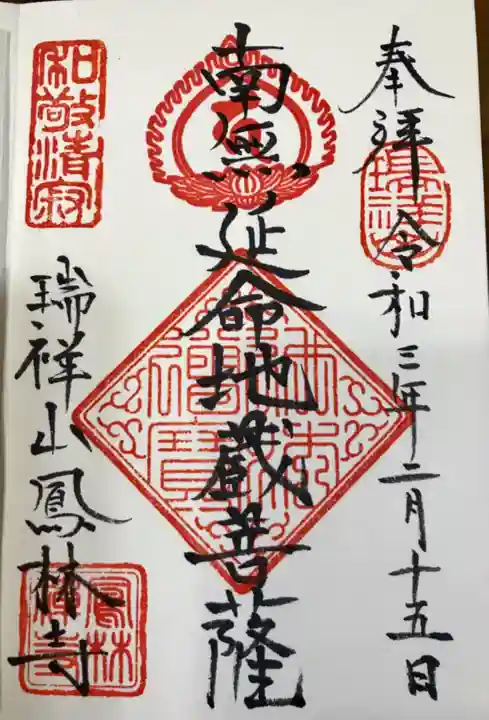 奉拝 令和三年二月十五日
南無延命地蔵菩薩
和敬清寂
瑞祥山鳳林寺
鳳林禅寺